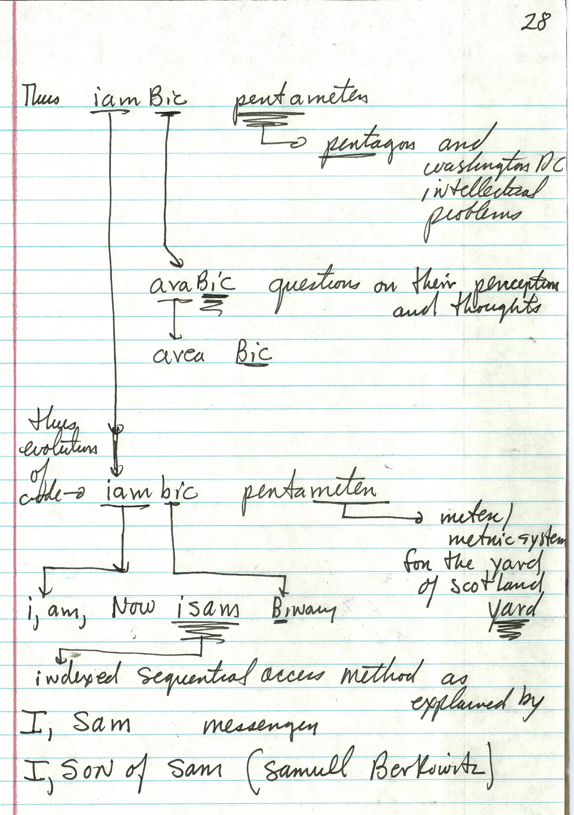 28
Thus iam Bic pentameter
pentagon and
washington DC
intellectual
problems
ara Bic questions on their perception
and thoughts
area Bic
thus
evolution
of
code iam bic pentameter
meter/
metric system
for the yard
of scotland
yard
i, am, Now isam Binary
indexed sequential access method as
explained by
I, Sam messenger
I, SON of Sam (Samuell Berkowitz)